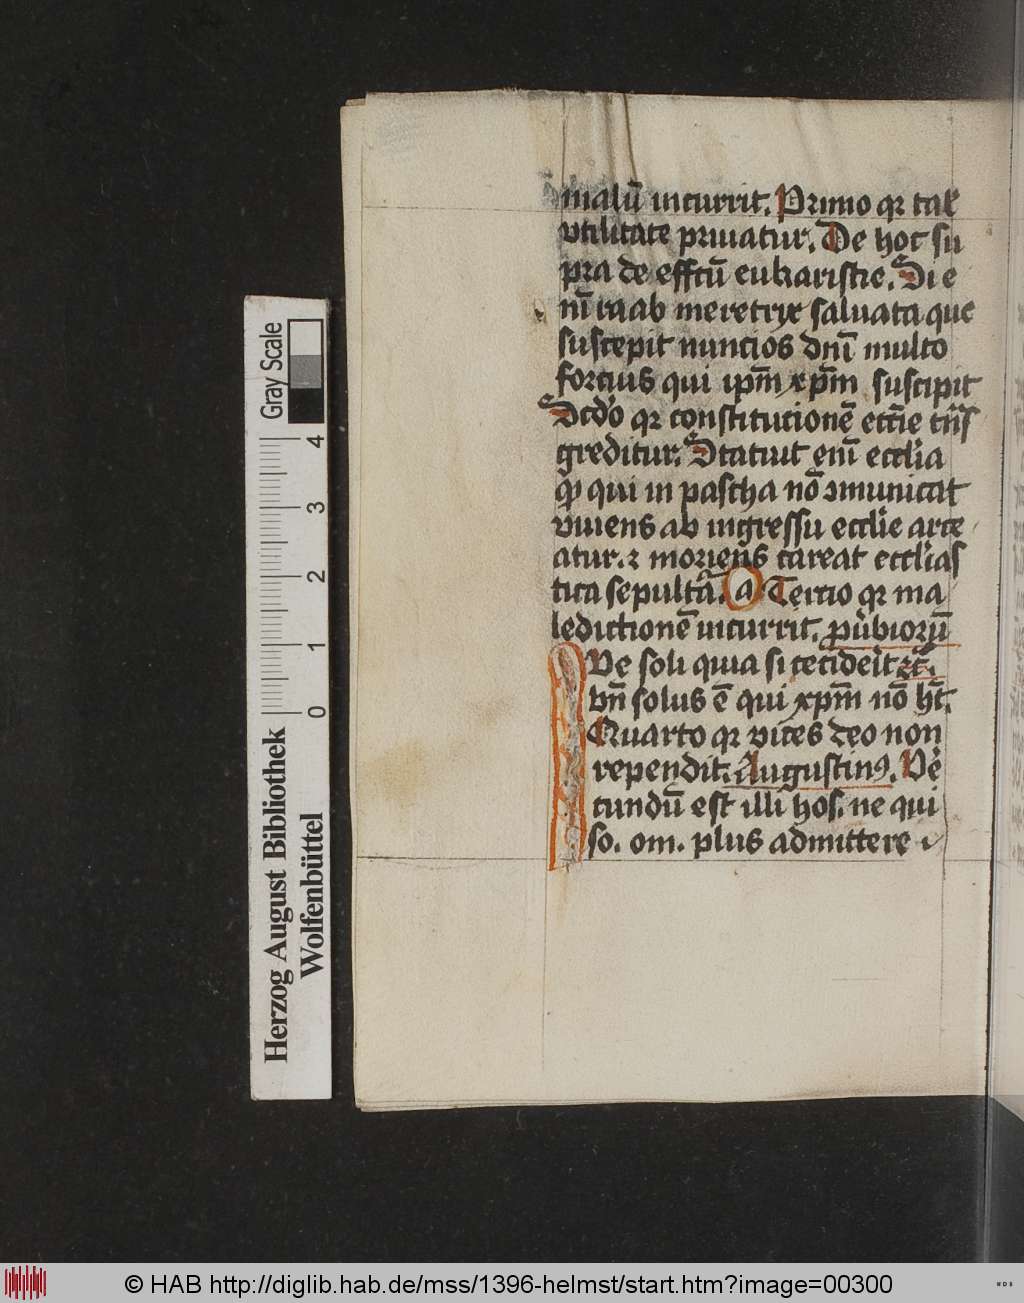 malū incurrit. Primo qr tal
vtilitate priuatur. De hoc su
pra de effctū eukaristie. Si e
nī raab meretrix saluata que
suscepit nuncios dnī multo
forcius qui ipm̄ xpm̄ suscipit
Scd'o qr constitucionē eccīe trās
greditur. Statuit enī eccl'ia
qp qui in pascha nō ɔmunicat
viuens ab ingressu eccl'ie arce
atur. ⁊ moriens careat eccl'ias
tica sepultā. a Tercio qr ma
ledictionē incurrit.
Ve soli quia si cecideit ⁊c̄.
vn̄ solus ē qui xpm̄ nō ht̄.
Quarto qr vices deo non
rependit. Augustinꝰ. Ve
cundū est illi hos. ne qui
so. om. plus admittere
Herzog August Bibliothek
Wolfenbüttel
Gray Scale
0 1 2 3 4
© HAB http://diglib.hab.de/mss/1396-helmst/start.htm?image=00300